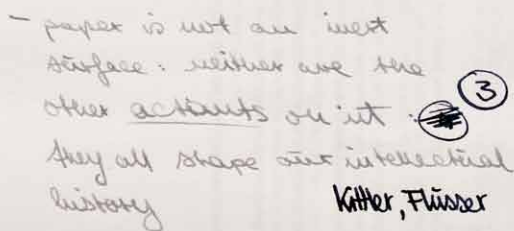 - paper is not an inert
surface : neither are the
other actants on it . ③
they all shape our intellectual
history Kittler, Flusser